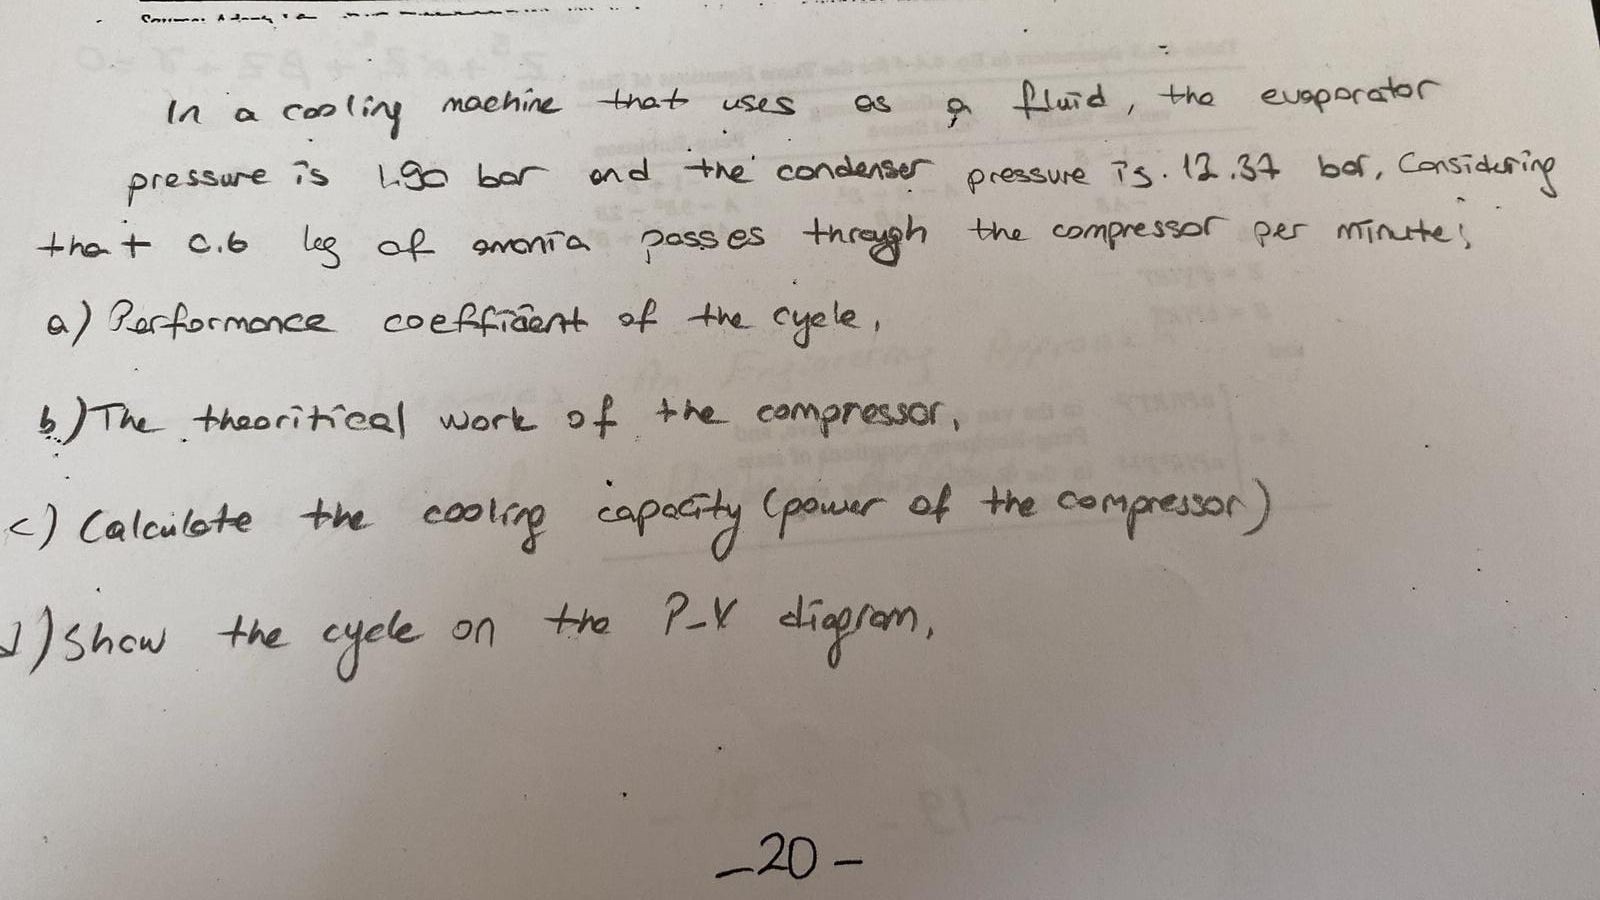 In a cooling machine that uses as a fluid, the evaporator
pressure is 1.90 bar and the condenser pressure is. 12.37 bar, Considering
that 0.6 kg of amonia passes through the compressor per minute;
a) Performance coefficient of the cycle,
b) The theoritical work of the compressor,
c) Calculate the cooling capacity (power of the compressor)
d) Show the cycle on the P-V diagram,
-20-